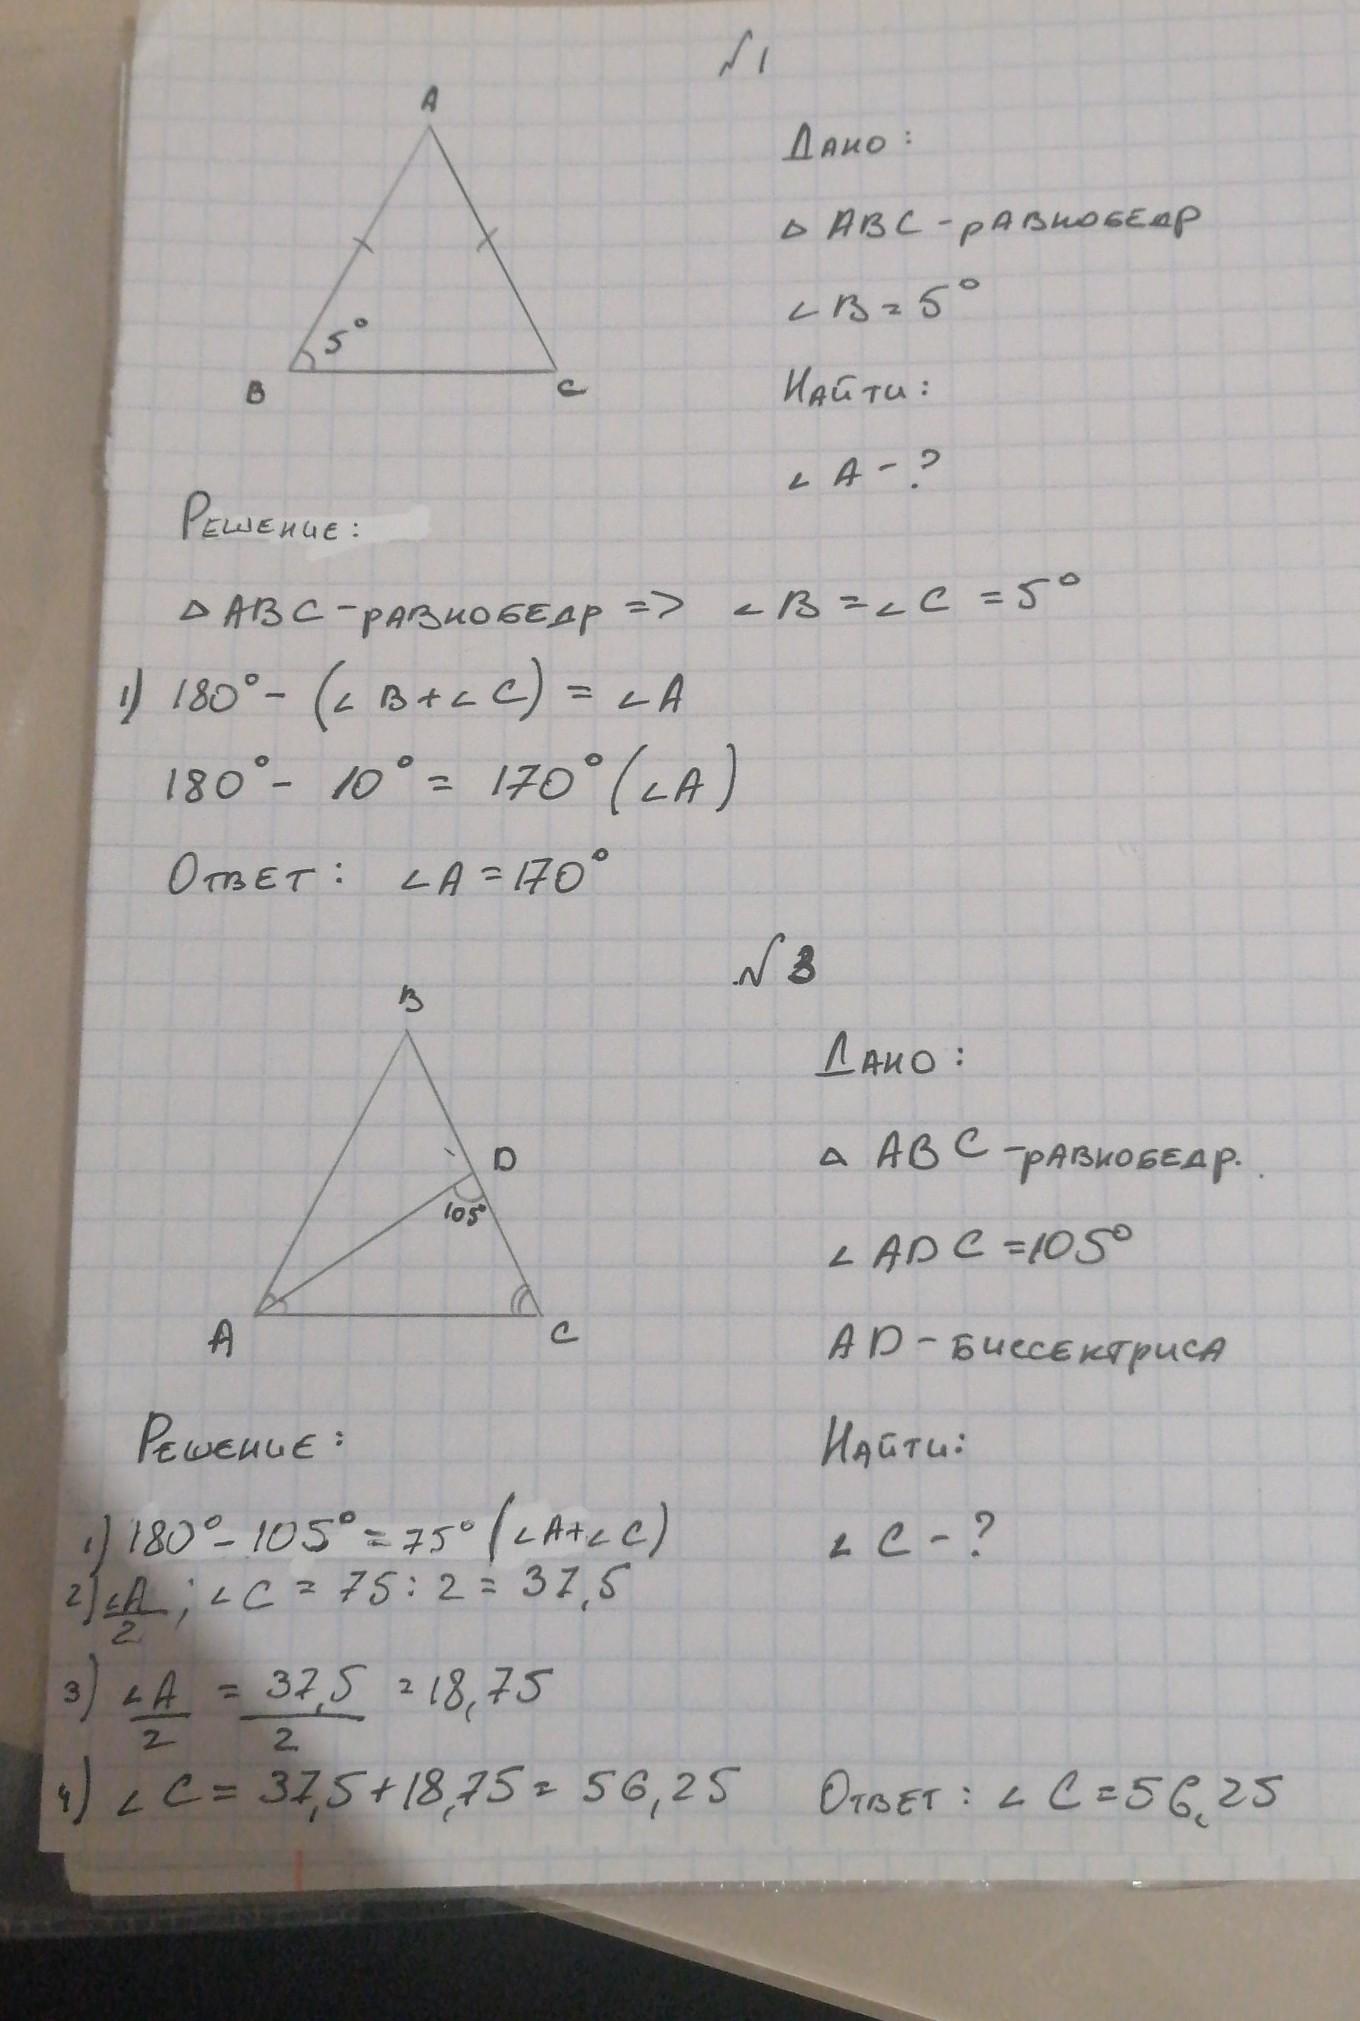 №1
A
Дано:
△ ABC - равнобедр
∠B = 5°
5°
B
C
Найти:
∠A - ?
Решение:
△ABC - равнобедр => ∠B = ∠C = 5°
1) 180° - (∠B + ∠C) = ∠A
180° - 10° = 170° (∠A)
Ответ: ∠A = 170°
№3
B
Дано:
△ ABC - равнобедр.
D
105°
∠ADC = 105°
A
C
AD - биссектриса
Решение:
Найти:
1) 180° - 105° = 75° (∠A + ∠C)
∠C - ?
2) ∠A/2 ; ∠C = 75 : 2 = 37,5
3) ∠A/2 = 37,5/2 = 18,75
4) ∠C = 37,5 + 18,75 = 56,25
Ответ: ∠C = 56,25